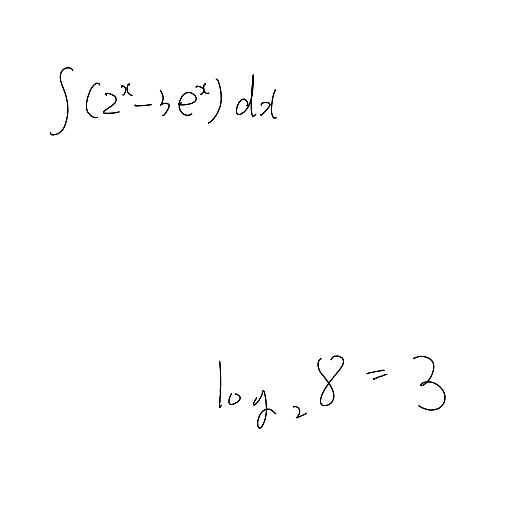 ∫(2ˣ-3eˣ)dx
log₂8=3